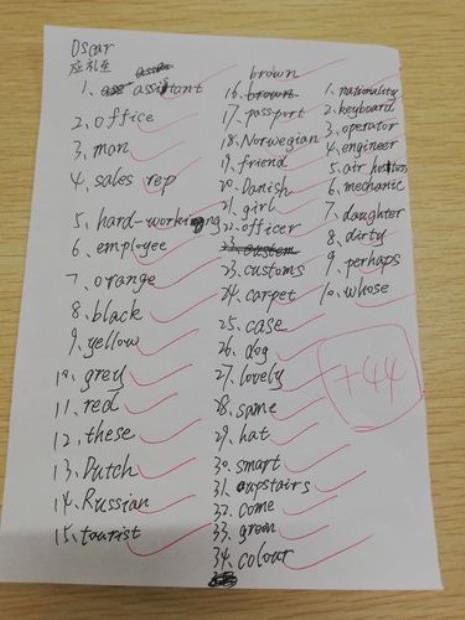 Oscar
应礼至
1、assistant
2、office
3、man
4、sales rep
5、hard-working
6、employee
7、orange
8、black
9、yellow
10、grey
11、red
12、these
13、Dutch
14、Russian
15、tourist
brown
16、brown
17、passport
18、Norwegian
19、friend
20、Danish
21、girl
22、officer
23、custom
23、customs
24、carpet
25、case
26、dog
27、lovely
28、same
29、hat
30、smart
31、upstairs
32、come
33、green
34、colour
1、nationality
2、keyboard
3、operator
4、engineer
5、air hostess
6、mechanic
7、daughter
8、dirty
9、perhaps
10、whose
+44